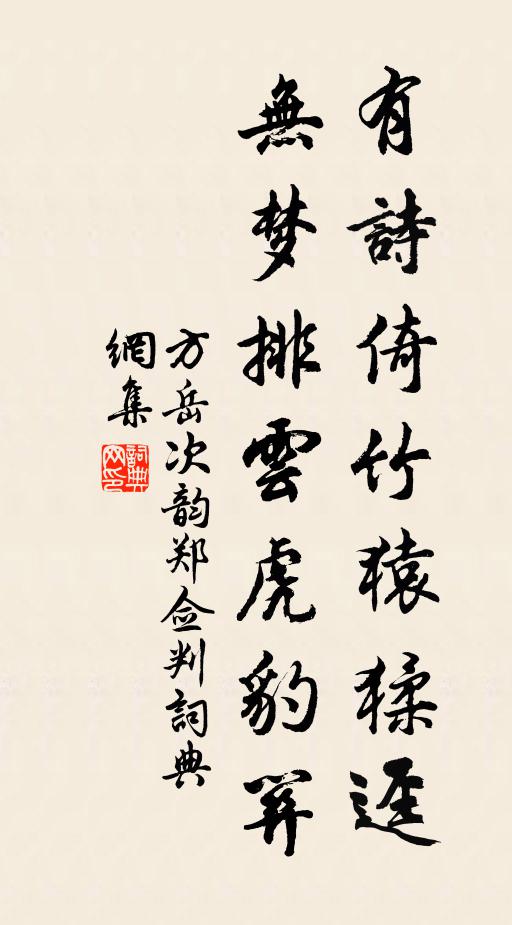 有詩倚竹猿猱逕
無梦排雲虎豹關
方岳次韵郑佥判詞典
網集
詞典网印